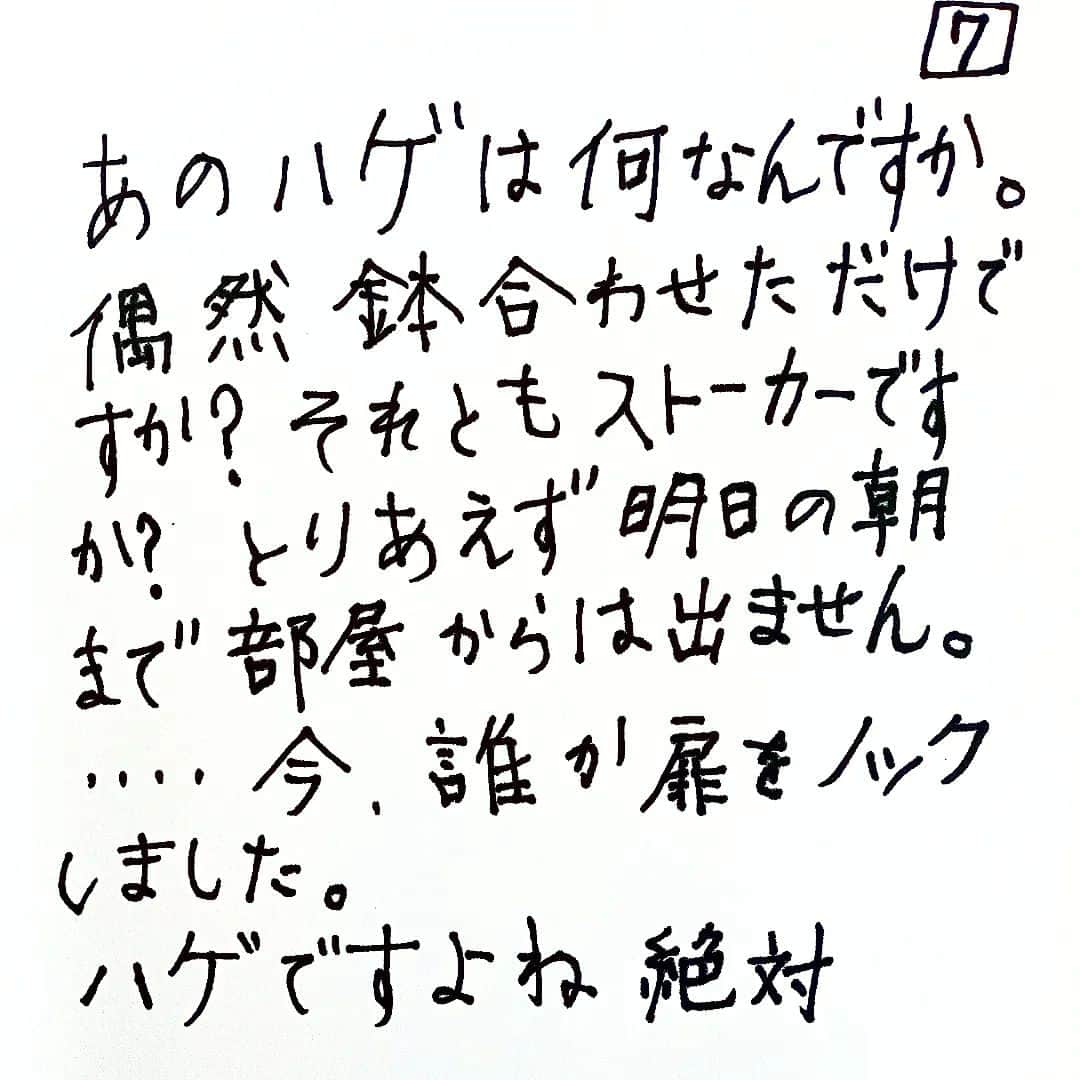 7
あのハゲは何なんですか。
偶然鉢合わせただけで
すか?それともストーカーです
か?とりあえず明日の朝
まで部屋からは出ません。
‥‥今、誰か扉をノック
しました。
ハゲですよね絶対